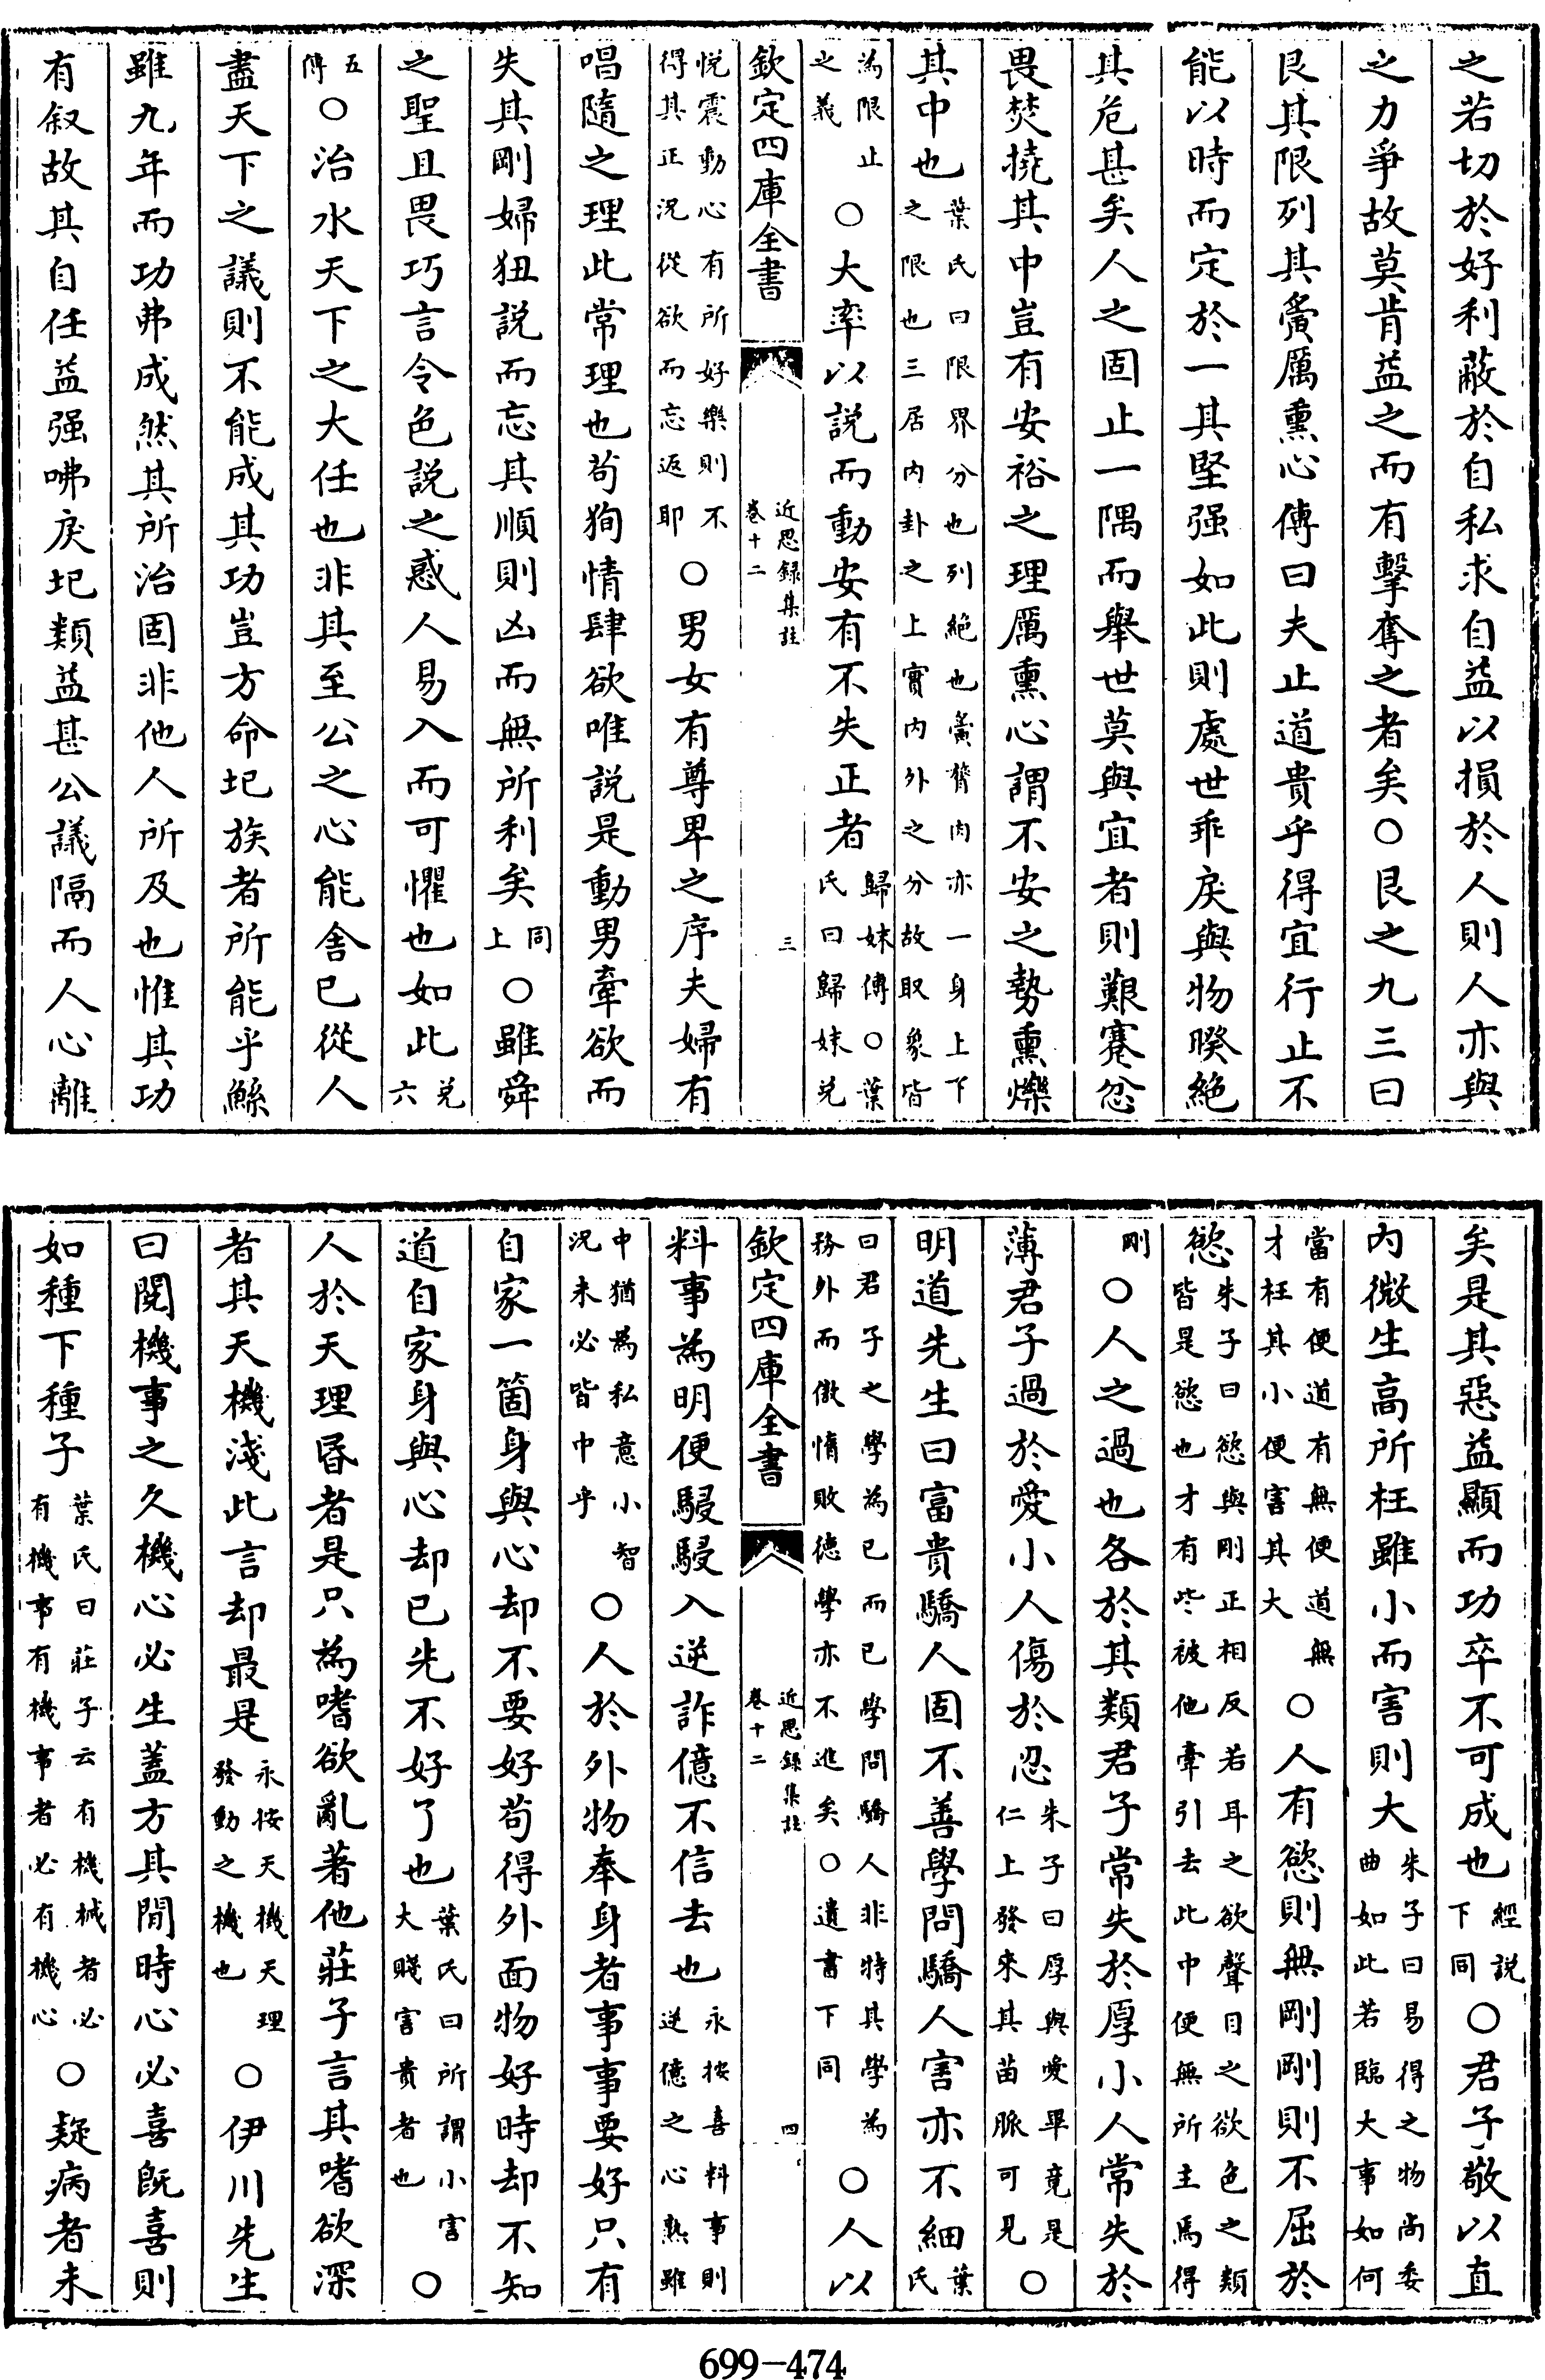 之若切於好利蔽於自私求自益以損於人則人亦與
之力爭故莫肯益之而有擊奪之者矣○艮之九三曰
艮其限列其夤厲熏心傳曰夫止道貴乎得宜行止不
能以時而定於一其堅强如此則處世乖戾與物暌絶
其危甚矣人之固止一隅而舉世莫與宜者則艱蹇忿
畏焚撓其中豈有安裕之理厲熏心謂不安之勢熏爍
其中也葉氏曰限界分也列絶也夤膂肉亦一身上下
之限也三居内卦之上實内外之分故取象皆
為限止
之義
○大率以說而動安有不失正者歸妹傳○葉
氏曰歸妹兑
欽定四庫全書
近思錄集註
卷十二
三
悦震動心有所好樂則不
得其正況從欲而忘返耶
○男女有尊卑之序夫婦有
唱隨之理此常理也苟狥情肆欲唯説是動男牽欲而
失其剛婦狃説而忘其順則凶而無所利矣同
上
○雖舜
之聖且畏巧言令色説之惑人易入而可懼也如此兑
六
五
傳
○治水天下之大任也非其至公之心能舍已從人
盡天下之議則不能成其功豈方命圮族者所能乎鯀
雖九年而功弗成然其所治固非他人所及也惟其功
有叙故其自任益强咈戾圮類益甚公議隔而人心離
矣是其惡益顯而功卒不可成也經說
下同
○君子敬以直
内微生高所枉雖小而害則大朱子曰易得之物尚委
曲如此若臨大事如何
當有便道有無便道無
才枉其小便害其大
○人有慾則無剛剛則不屈於
慾朱子曰慾與剛正相反若耳之欲聲目之欲色之類
皆是慾也才有些被他牽引去此中便無所主焉得
剛
○人之過也各於其類君子常失於厚小人常失於
薄君子過於愛小人傷於忍朱子曰厚與愛畢竟是
仁上發來其苗脈可見
○
明道先生曰富貴驕人固不善學問驕人害亦不細葉
氏
曰君子之學為已而已學問驕人非特其學為
務外而傲惰敗德學亦不進矣○遺書下同
○人以
欽定四庫全書
近思錄集註
卷十二
四
料事為明便駸駸入逆詐億不信去也永按喜料事則
逆億之心熟雖
中猶為私意小智
況未必皆中乎
○人於外物奉身者事事要好只有
自家一箇身與心却不要好苟得外面物好時却不知
道自家身與心却已先不好了也葉氏曰所謂小害
大賤害貴者也
○
人於天理昏者是只為嗜欲亂著他莊子言其嗜欲深
者其天機淺此言却最是永按天機天理
發動之機也
○伊川先生
曰閱機事之久機心必生蓋方其閒時心必喜既喜則
如種下種子葉氏曰莊子云有機械者必
有機事有機事者必有機心
○疑病者未
699-474